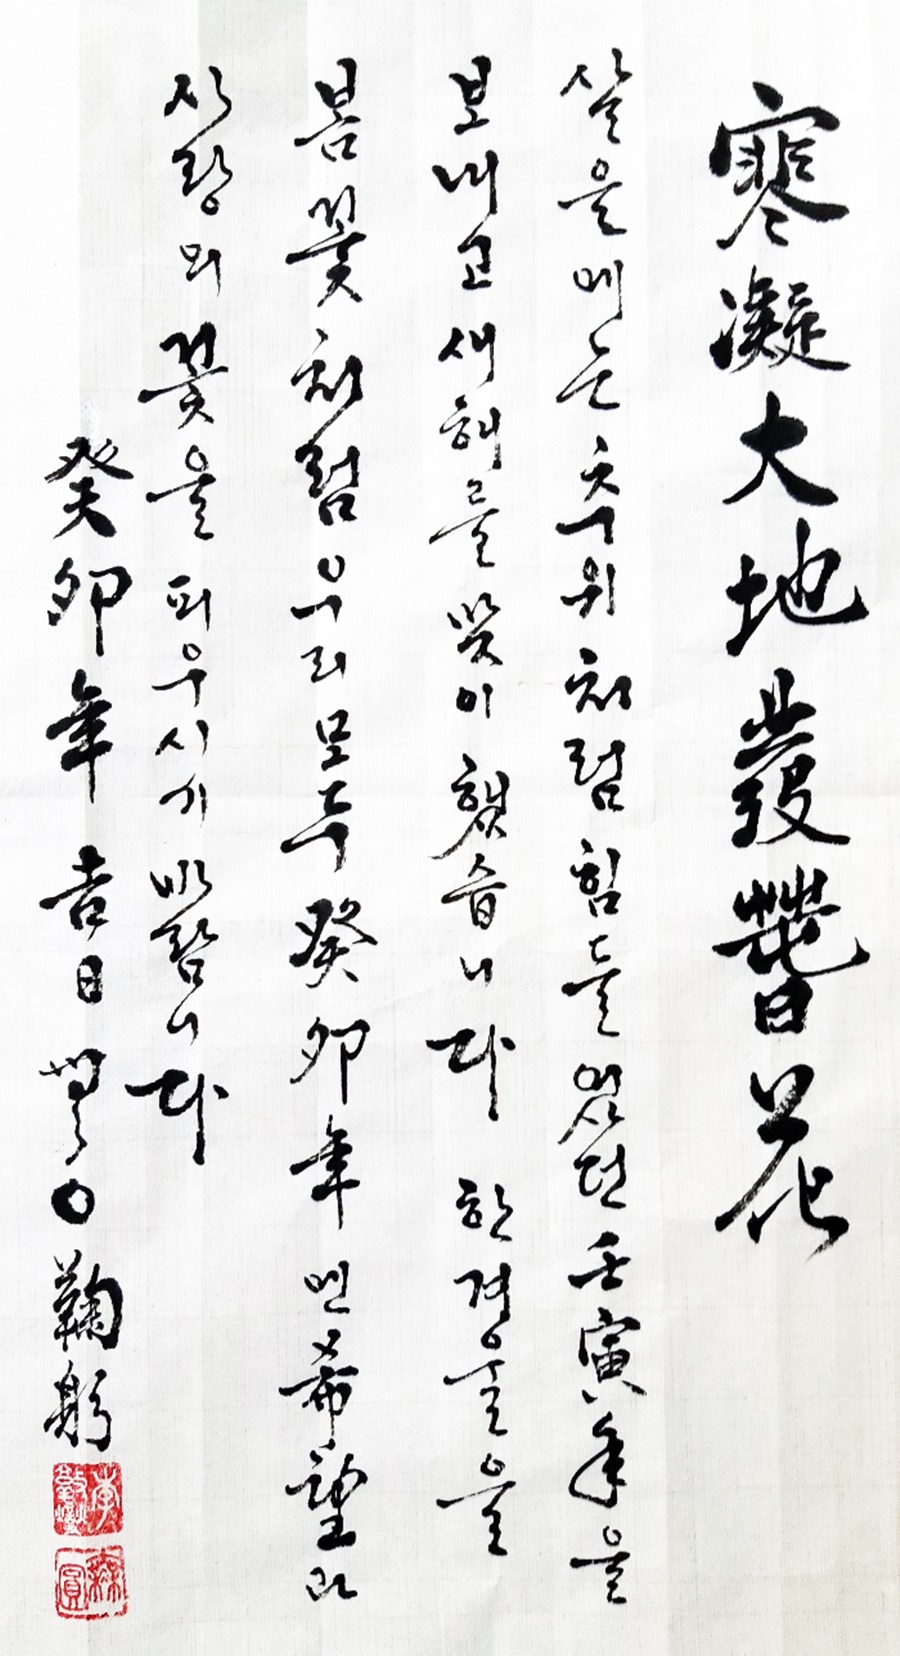 寒凝大地發萅花
살을 에는 추위처럼 힘들었던 壬寅年을
보내고 새해를 맞이했습니다 한겨울을
봄꽃처럼 우리 모두 癸卯年엔 希望과
사랑의 꽃을 피우시기 바랍니다
癸卯年 吉日 無○ 鞠躬
無圓